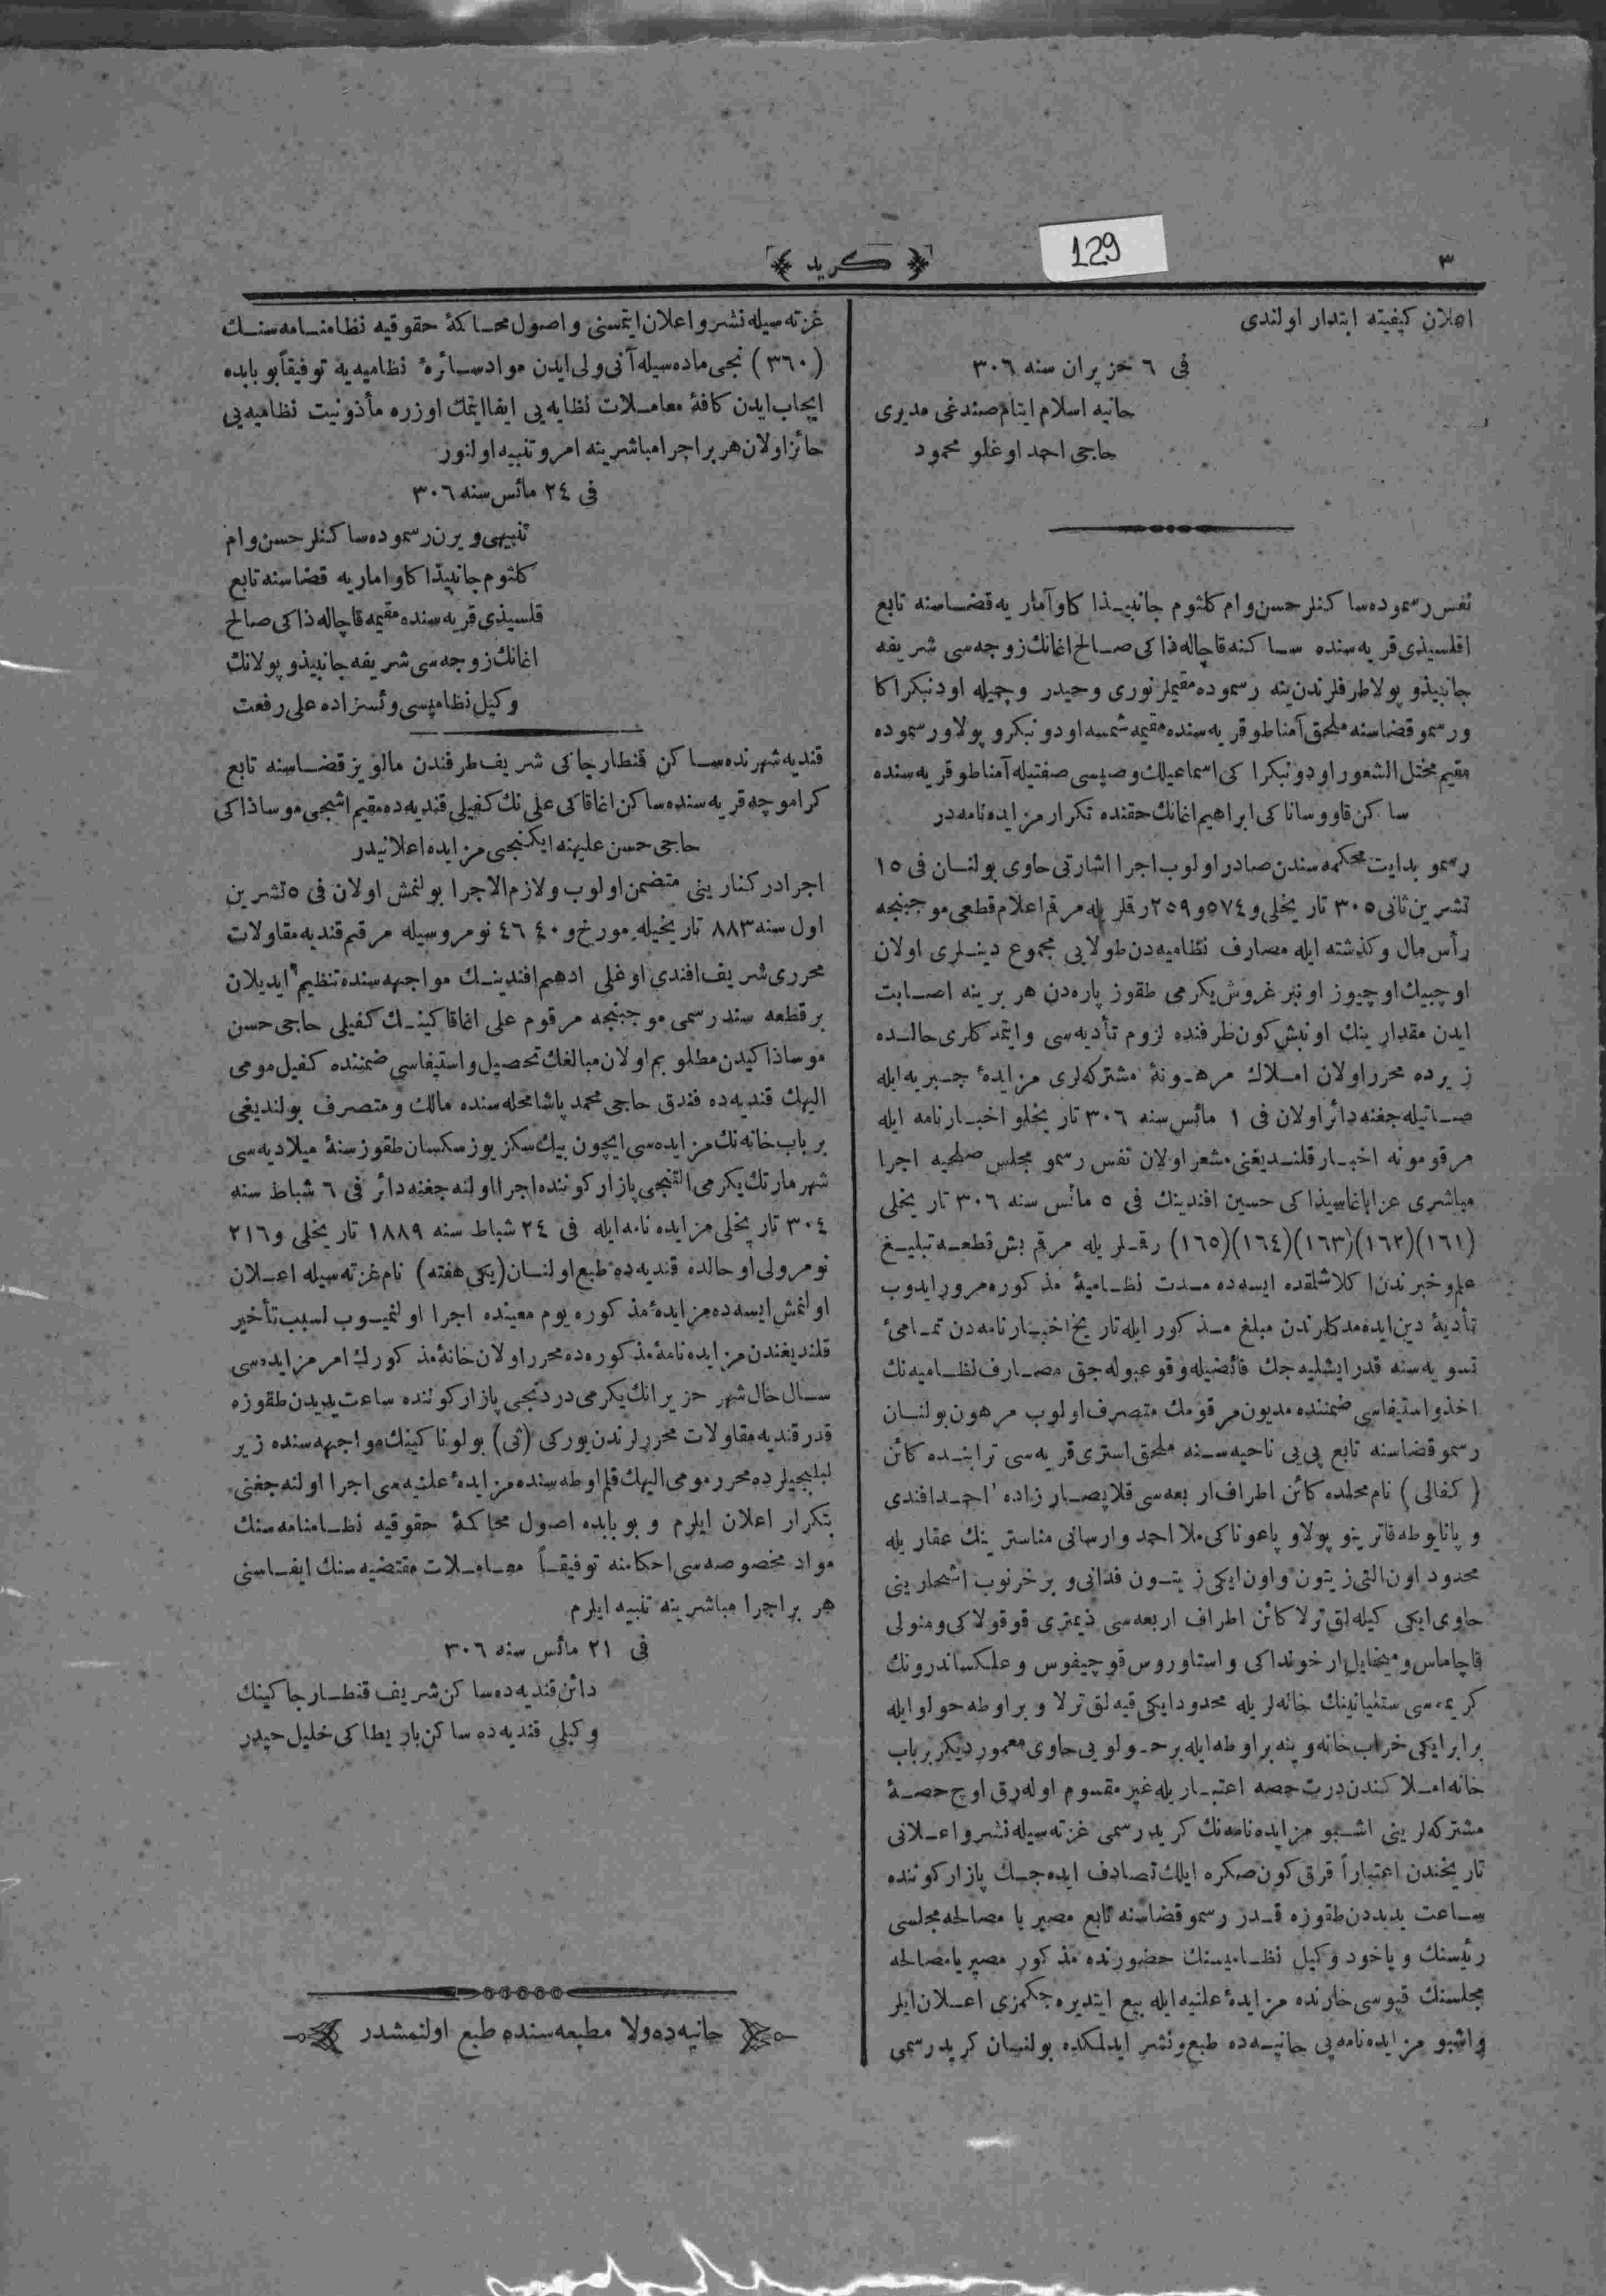 ٣
129
كريد
اعلان كيفيته ابتدار اولندى
فى ٦ حزيران سنه ٣٠٦
حانيه اسلام ايتام صندغى مديرى
حاجى احمد اوغلو محمود
نفس رسموده ساكنلر حسن وام كلثوم جانبيذا كاو آمار يه قضاسنه تابع
اقلسيذى قريه سنده ساكنه قاچاله ذاكى صالح اغانك زوجه سى شريفه
جانبيذو پولاطرفلرندن ينه رسموده مقيملر نورى وحيدر وجميله اودنبكراكا
ورسمو قضاسنه ملحق آمناطو قريه سنده مقيمه شمسه اودونبكرو پولاو رسموده
مقيم مختل الشعور اودونبكرا كى اسماعيلك وصيسى صفتيله آمناطو قريه سنده
ساكن قاووساناكى ابراهيم اغانك حقنده تكرار مزايده نامه در
رسمو بدايت محكمه سندن صادر اولوب اجرا اشارتى حاوى بولنان فى ١٥
تشرين ثانى ٣٠٥ تاريخلى و ٥٧٤ و ٢٥٩ رقلر يله مرقم اعلام قطعى موجبنجه
رأس مال وكذشته ايله مصارف نظاميه دن طولايى مجموع دينلرى اولان
اوچبيك اوچيوز اونبر غروش يكرمى طقوز پاره دن هر برينه اصابت
ايدن مقدارينك اونبش كون ظرفنده لزوم تأديه سى وايتمدكلرى حالده
زيرده محرر اولان املاك مرهونۀ مشتركه لرى مزايدۀ جبريه ايله
صاتيله جغنه دائر اولان فى ١ مائس سنه ٣٠٦ تاريخلو اخبارنامه ايله
مرقومونه اخبار قلنديغنى مشعر اولان نفس رسمو مجلس صلحيه اجرا
مباشرى عزاباغاسيذاكى حسين افندينك فى ٥ مائس سنه ٣٠٦ تاريخلى
(١٦١)(١٦٢)(١٦٣)(١٦٤)(١٦٥) رقلر يله مرقم بش قطعه تبليغ
علم وخبرندن اكلاشلقده ايسه ده مدت نظاميۀ مذكوره مرور ايدوب
تأديۀ دين ايده مدكلرندن مبلغ مذكور ايله تاريخ اخبارنامه دن تمامئ
تسويه سنه قدر ايشليه جك فائضيله وقوعبوله جق مصارف نظاميه نك
اخذ واستيفاسى ضمننده مديون مرقومك متصرف اولوب مرهون بولنان
رسمو قضاسنه تابع پى پى ناحيه سنه ملحق استرى قريه سى ترابنده كائن
(كفالى) نام محلده كائن اطراف اربعه سى قلاپصار زاده احمد افندى
و پانايوطه فاترينو پولاو پاعوناكى ملا احمد وارسانى مناسترينك عقاريله
محدود اون التى زيتون واون ايكى زيتون فدانى و بر خرنوب اشجارينى
حاوى ايكى كيله لق ترلا كائن اطراف اربعه سى ذيمترى قوقولاكى ومنولى
قاچاماس وميخايل ارخونداكى واستاوروس قوچيفوس وعلكساندرونك
كريمه سى ستليانينك خانه لر يله محدود ايكى قيه لق ترلا و بر اوطه حولو ايله
برابر ايكى خراب خانه و ينه بر اوطه ايله بر حولويى حاوى معمور ديكر بر باب
خانه املاكندن درت حصه اعتباريله غير مقسوم اوله رق اوچ حصۀ
مشتركه لرينى اشبو مزايده نامه نك كريد رسمى غزته سيله نشر واعلانى
تاريخندن اعتباراً قرق كون صكره ايلك تصادف ايده جك پازار كوننده
ساعت يديدن طقوزه قدر رسمو قضاسنه تابع مصيريا مصالحه مجلسى
رئيسنك و ياخود وكيل نظاميسنك حضورنده مذكور مصيريا مصالحه
مجلسنك قپوسى خارنده مزايدۀ علنيه ايله بيع ايتديره جكمزى اعلان ايلر
واشبو مزايده نامه يى حانيه ده طبع ونشر ايدلمكده بولنان كريد رسمى
غزته سيله نشر واعلان ايتمسنى واصول محاكمۀ حقوقيه نظامنامه سنك
(٣٦٠) نجى ماده سيله آنى ولى ايدن مواد سائرۀ نظاميه يه توفيقاً بوبابده
ايجاب ايدن كافۀ معاملات نظاميه يى ايفا ايتمك اوزره مأذونيت نظاميه يى
حائز اولان هر بر اجرا مباشرينه امر وتنبيه اولنور
فى ٢٤ مائس سنه ٣٠٦
تنبيهى ويرن رسموده ساكنلر حسن وام
كلثوم جانبيذا كاو امار يه قضاسنه تابع
قلسيذى قريه سنده مقيمه قاچاله ذاكى صالح
اغانك زوجه سى شريفه جانبيذو پولانك
وكيل نظاميسى وئسز زاده على رفعت
قنديه شهرنده ساكن قنطارجاكى شريف طرفندن مالويز قضاسنه تابع
كراموچه قريه سنده ساكن اغاقاكى على نك كفيلى قنديه ده مقيم اشجى موساذاكى
حاجى حسن عليهنه ايكنجى مزايده اعلانيدر
اجرا دركنارينى متضمن اولوب ولازم الاجرا بولنمش اولان فى ٥ تشرين
اول سنه ٨٨٣ تاريخيله مورخ و ٤٦٤٠ نومروسيله مرقم قنديه مقاولات
محررى شريف افندى اوغلى ادهم افندينك مواجهه سنده تنظيم ايديلان
بر قطعه سند رسمى موجبنجه مرقوم على اغاقاكينك كفيلى حاجى حسن
موساذاكيدن مطلوبم اولان مبالغك تحصيل واستيفاسى ضمننده كفيل مومى
اليهك قنديه ده فندق حاجى محمد پاشا محله سنده مالك ومتصرف بولنديغى
بر باب خانه نك مزايده سى ايچون بيك سكز يوز سكسان طقوز سنۀ ميلاديه سى
شهر مارتك يكرمى التنجى پازار كوننده اجرا اولنه جغنه دائر فى ٦ شباط سنه
٣٠٤ تاريخلى مزايده نامه ايله فى ٢٤ شباط سنه ١٨٨٩ تاريخلى و ٢١٦
نومرولى او حالده قنديه ده طبع اولنان (يكى هفته) نام غزته سيله اعلان
اولنمش ايسه ده مزايدۀ مذكوره يوم معينده اجرا اولنميوب لسبب تأخير
قلنديغندن مزايده نامۀ مذكوره ده محرر اولان خانۀ مذكورك امر مزايده سى
سال حال شهر حزيرانك يكرمى دردنجى پازار كوننده ساعت يديدن طقوزه
قدر قنديه مقاولات محررلرندن يوركى (ثى) بولوناكينك مواجهه سنده زير
لبلبجيلرده محرر مومى اليهك قلم اوطه سنده مزايدۀ علنيه سى اجرا اولنه جغنى
بتكرار اعلان ايلرم و بوبابده اصول محاكمۀ حقوقيه نظامنامه سنك
مواد مخصوصه سى احكامنه توفيقاً معاملات مقتضيه سنك ايفاسنى
هر بر اجرا مباشرينه تنبيه ايلرم
فى ٢١ مائس سنه ٣٠٦
دائن قنديه ده ساكن شريف قنطارجاكينك
وكيلى قنديه ده ساكن باريطاكى خليل حيدر
حانيه ده ولا مطبعه سنده طبع اولنمشدر